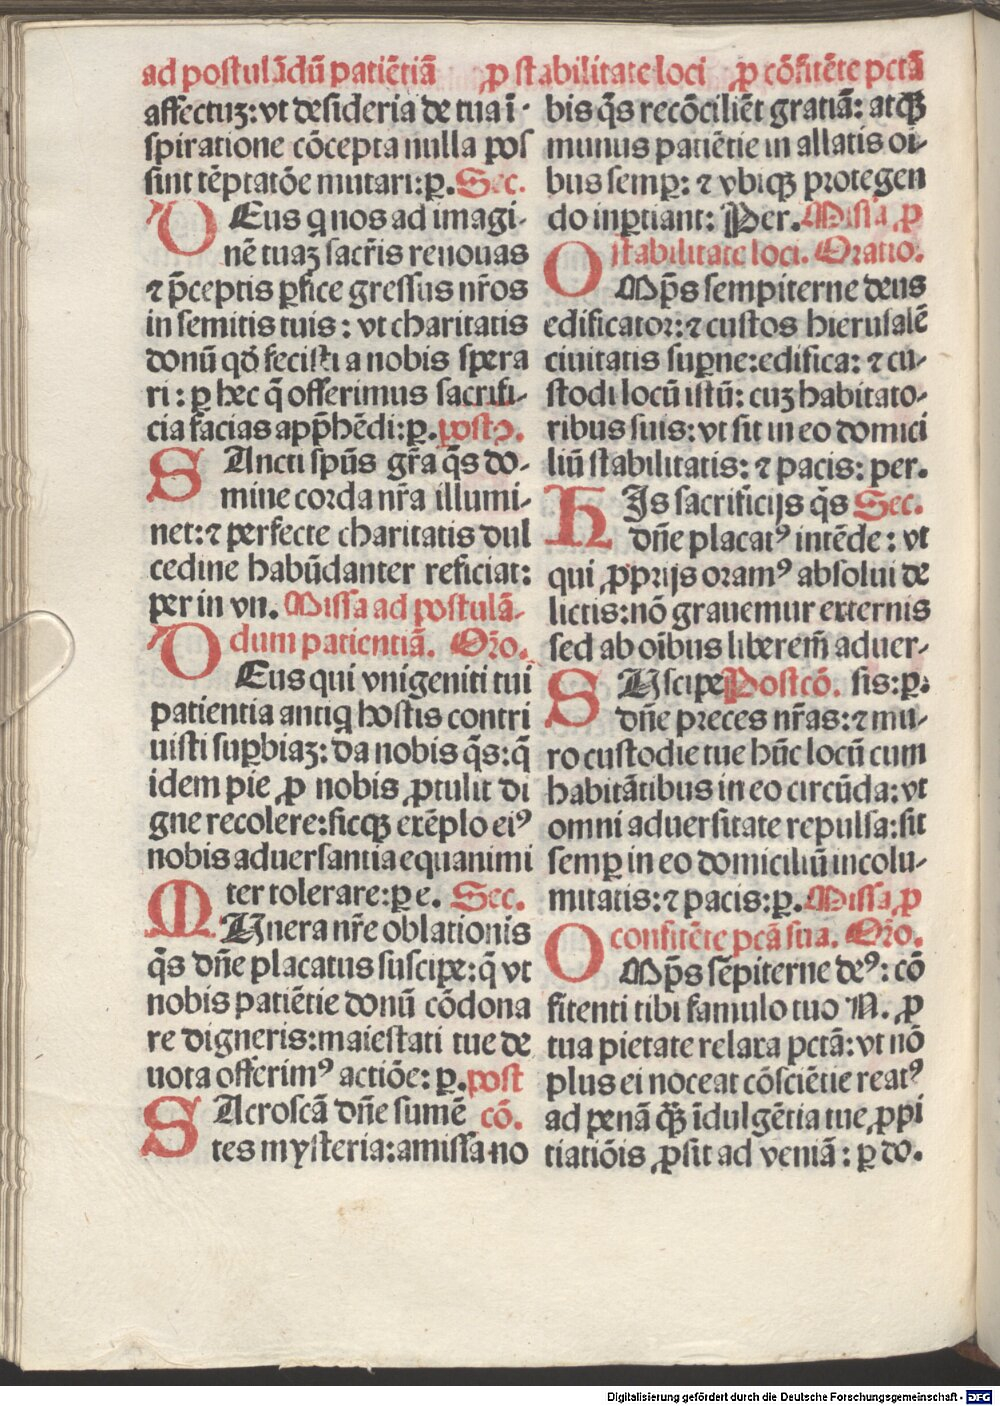 ad postulādū patiētiā ꝓ stabilitate loci ꝓ cōfitēte pctā
affectuȝ: vt desideria de tua ī-
spiratione cōcepta nulla pos
sint tēptatōe mutari: ꝑ. Sec.
DEus q nos ad imagi-
nē tuaȝ sacr̄is renouas
⁊ p̄ceptis ꝑfice gressus nr̄os
in semitis tuis: vt charitatis
donū qd̄ fecisti a nobis spera
ri: ꝑ hec q̄ offerimus sacrifi-
cia facias app̄hēdi: ꝑ. postↄ.
SAncti spūs gr̄a q̄s do-
mine corda nr̄a illumi-
net: ⁊ perfecte charitatis dul
cedine habūdanter reficiat:
per in vn. Missa ad postulā-
dum patientiā. Or̄o.
DEus qui vnigeniti tui
patientia antiq hostis contri
uisti suꝑbiaȝ: da nobis q̄s: q̄
idem pie ꝓ nobis ꝓtulit di
gne recolere: sicqȝ exēplo eiꝰ
nobis aduersantia equanimi
ter tolerare: ꝑ e. Sec.
MUnera nr̄e oblationis
q̄s dn̄e placatus suscipe: q̄ vt
nobis patiētie donū cōdona
re digneris: maiestati tue de
uota offerimꝰ actiōe: ꝑ. post
SAcroscā dn̄e sumē cō.
tes mysteria: amissā no
bis q̄s recōciliēt gratiā: atqȝ
munus patiētie in allatis oi-
bus semꝑ: ⁊ vbiqȝ protegen
do inꝑtiant: Per. Missa ꝓ
stabilitate loci. Oratio.
OMp̄s sempiterne deus
edificator: ⁊ custos hierusalē
ciuitatis suꝑne: edifica: ⁊ cu-
stodi locū istū: cuȝ habitato-
ribus suis: vt sit in eo domici
liū stabilitatis: ⁊ pacis: per.
HIs sacrificijs q̄s Sec.
dn̄e placatꝰ intēde: vt
qui ꝓprijs oramꝰ absolui de
lictis: nō grauemur externis
sed ab oībus liberem̄ aduer-
SUscipe Postcō. sis: ꝑ.
dn̄e preces nr̄as: ⁊ mu-
ro custodie tue hūc locū cum
habitātibus in eo circūda: vt
omni aduersitate repulsa: sit
semꝑ in eo domiciliū incolu-
mitatis: ⁊ pacis: ꝑ. Missa ꝓ
confitēte pctā sua. Or̄o.
OMp̄s sēpiterne deꝰ: cō
fitenti tibi famulo tuo N. ꝓ
tua pietate relaxa pctā: vt nō
plus ei noceat cōsciētie reatꝰ
ad penā qȝ īdulgētia tue ꝓpi
tiatiōis ꝓsit ad veniā: ꝑ do.
Digitalisierung gefördert durch die Deutsche Forschungsgemeinschaft - DFG